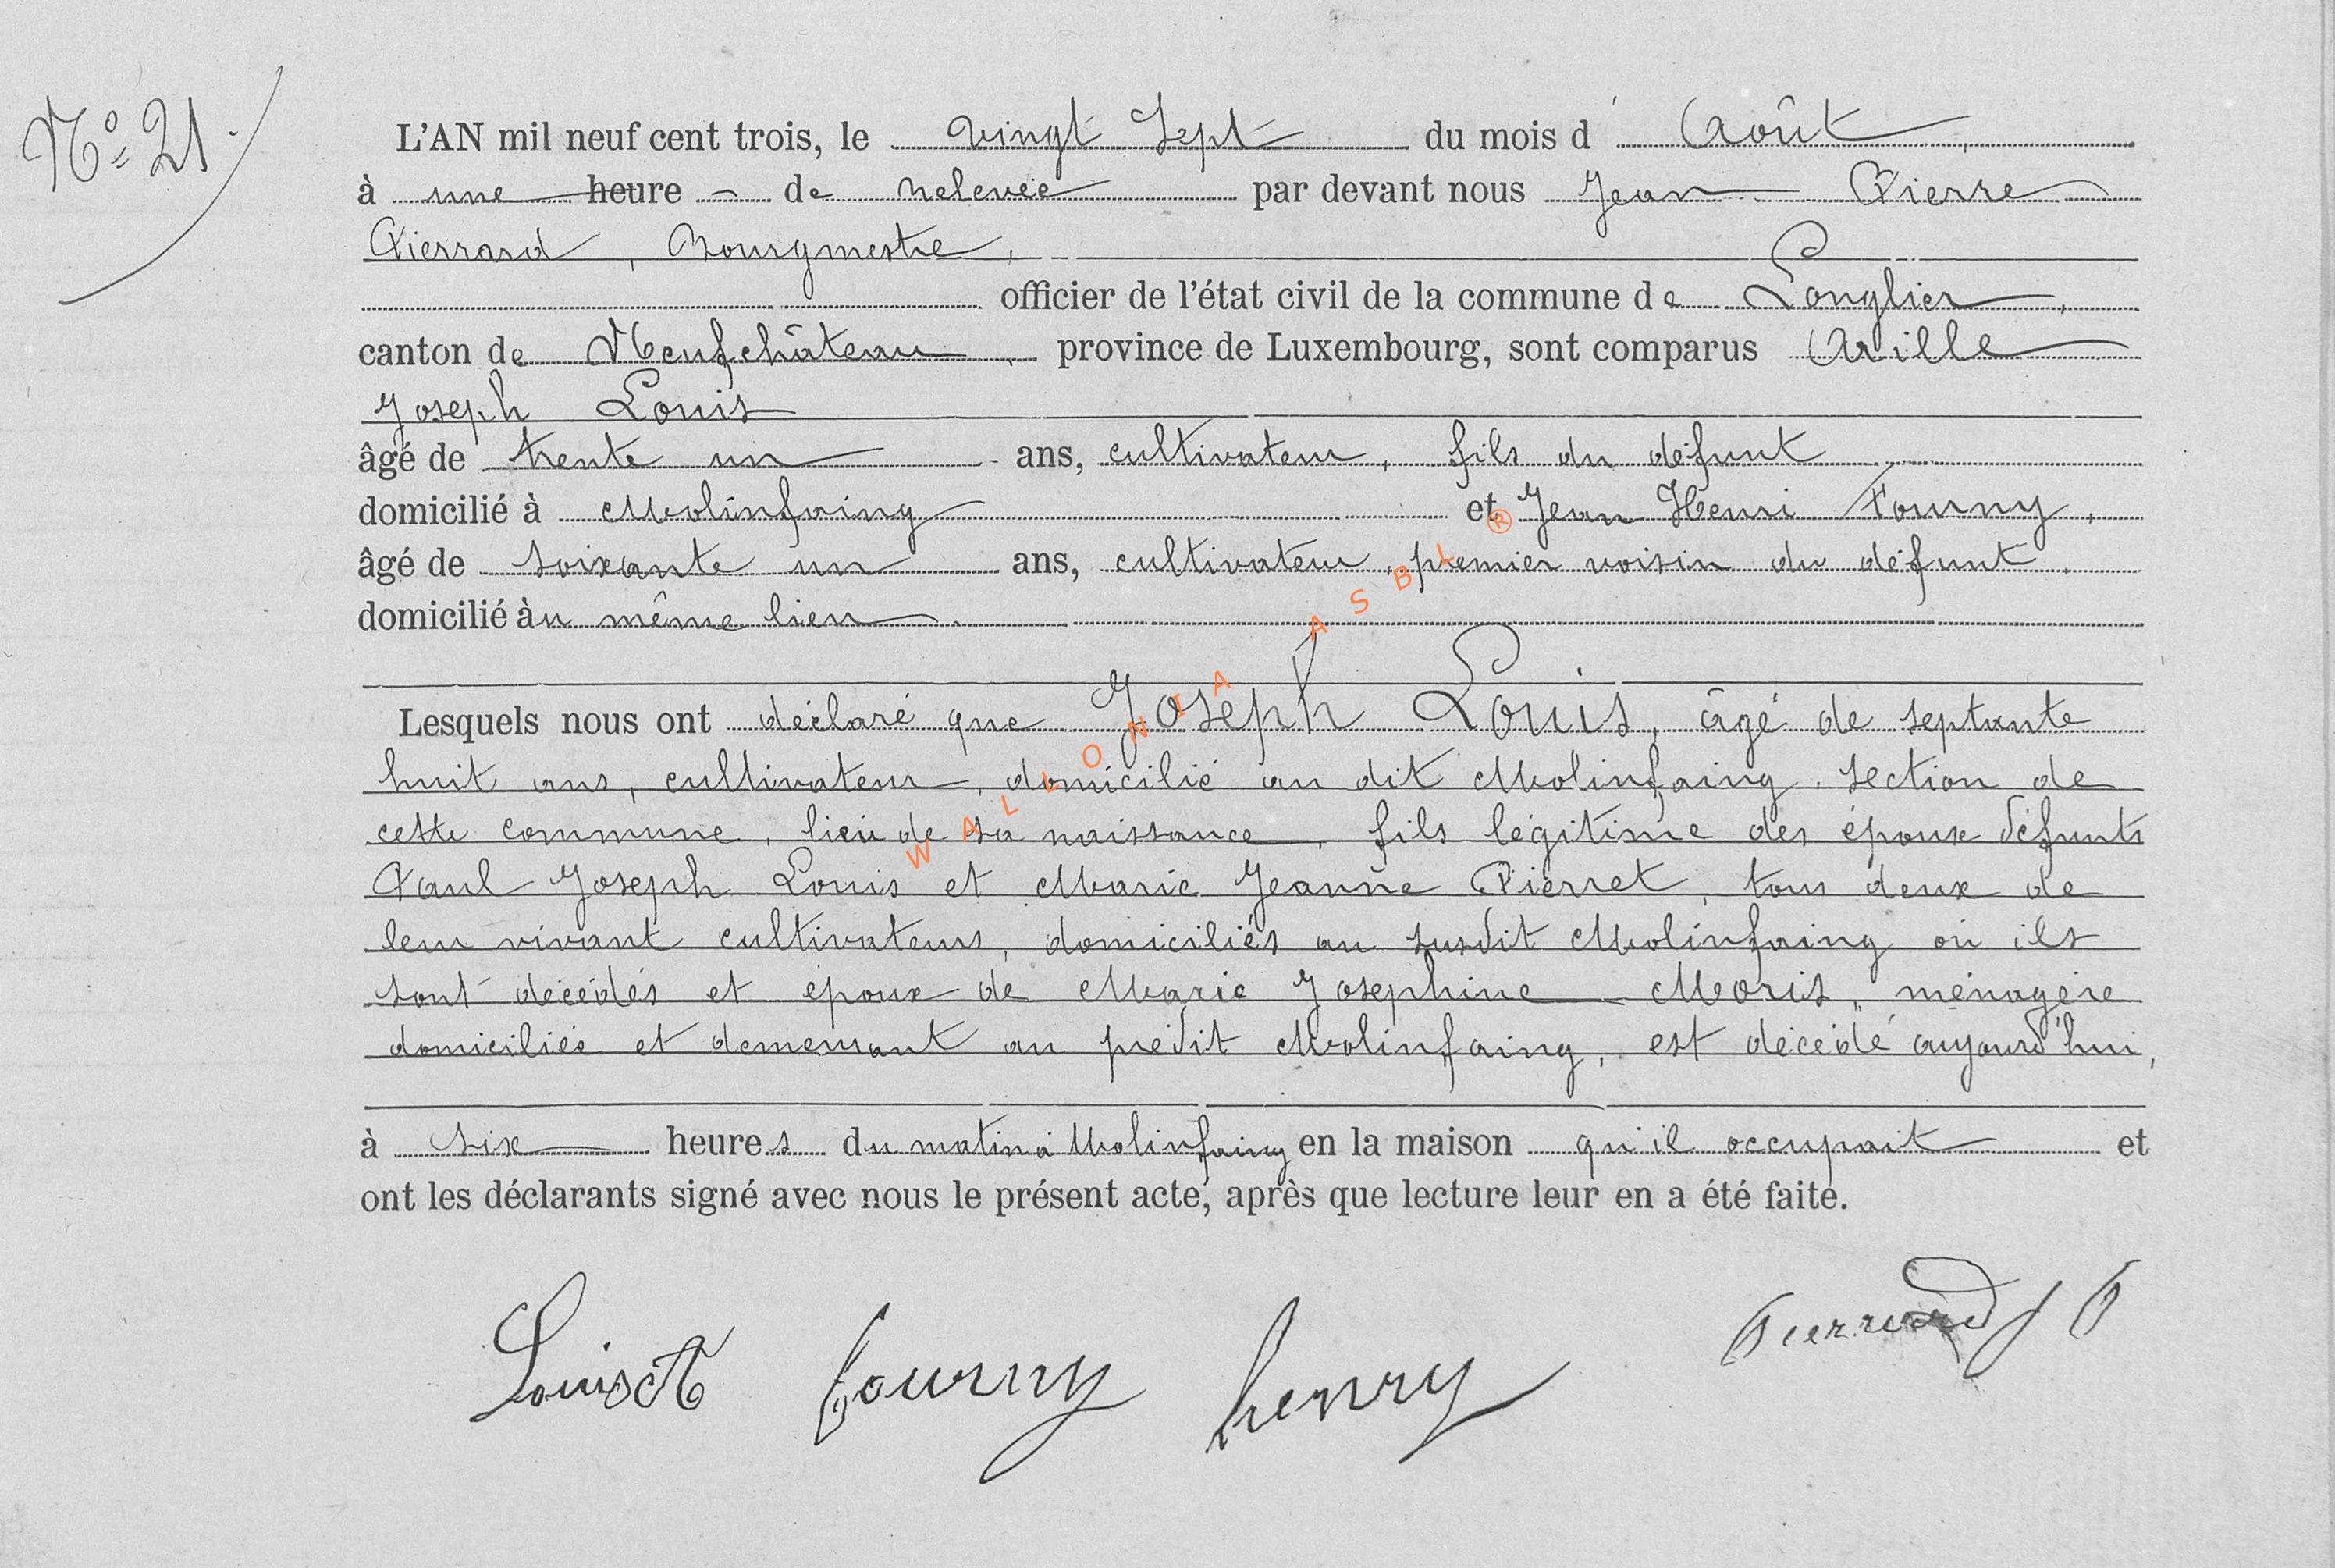 N° 21.
L'AN mil neuf cent trois, le vingt sept du mois d' Août,
à une heure de relevée par devant nous Jean Pierre
Pierrard, Bourgmestre,
officier de l'état civil de la commune de Longlier,
canton de Neufchâteau province de Luxembourg, sont comparus
Joseph Louis
âgé de trente un ans, cultivateur, fils du défunt
domicilié à Molinfaing et Jean Henri Fourny,
âgé de soixante un ans, cultivateur, premier voisin du défunt.
domicilié àu même lieu
Lesquels nous ont déclaré que Joseph Louis, âgé de septante
huit ans, cultivateur, domicilié au dit Molinfaing, section de
cette commune, lieu de sa naissance, fils légitime des époux défunts
Paul Joseph Louis et Marie Jeanne Pierret, tous deux de
leur vivant cultivateurs, domiciliés au susdit Molinfaing où ils
sont décédés et époux de Marie Josephine Moris, ménagère
domiciliée et demeurant au prédit Molinfaing, est décédé aujourd'hui,
à six heures du matin à Molinfaing en la maison qu'il occupait et
ont les déclarants signé avec nous le présent acte, après que lecture leur en a été faite.
fourny henry Pierrard J P
WALLONIA ASBL ®